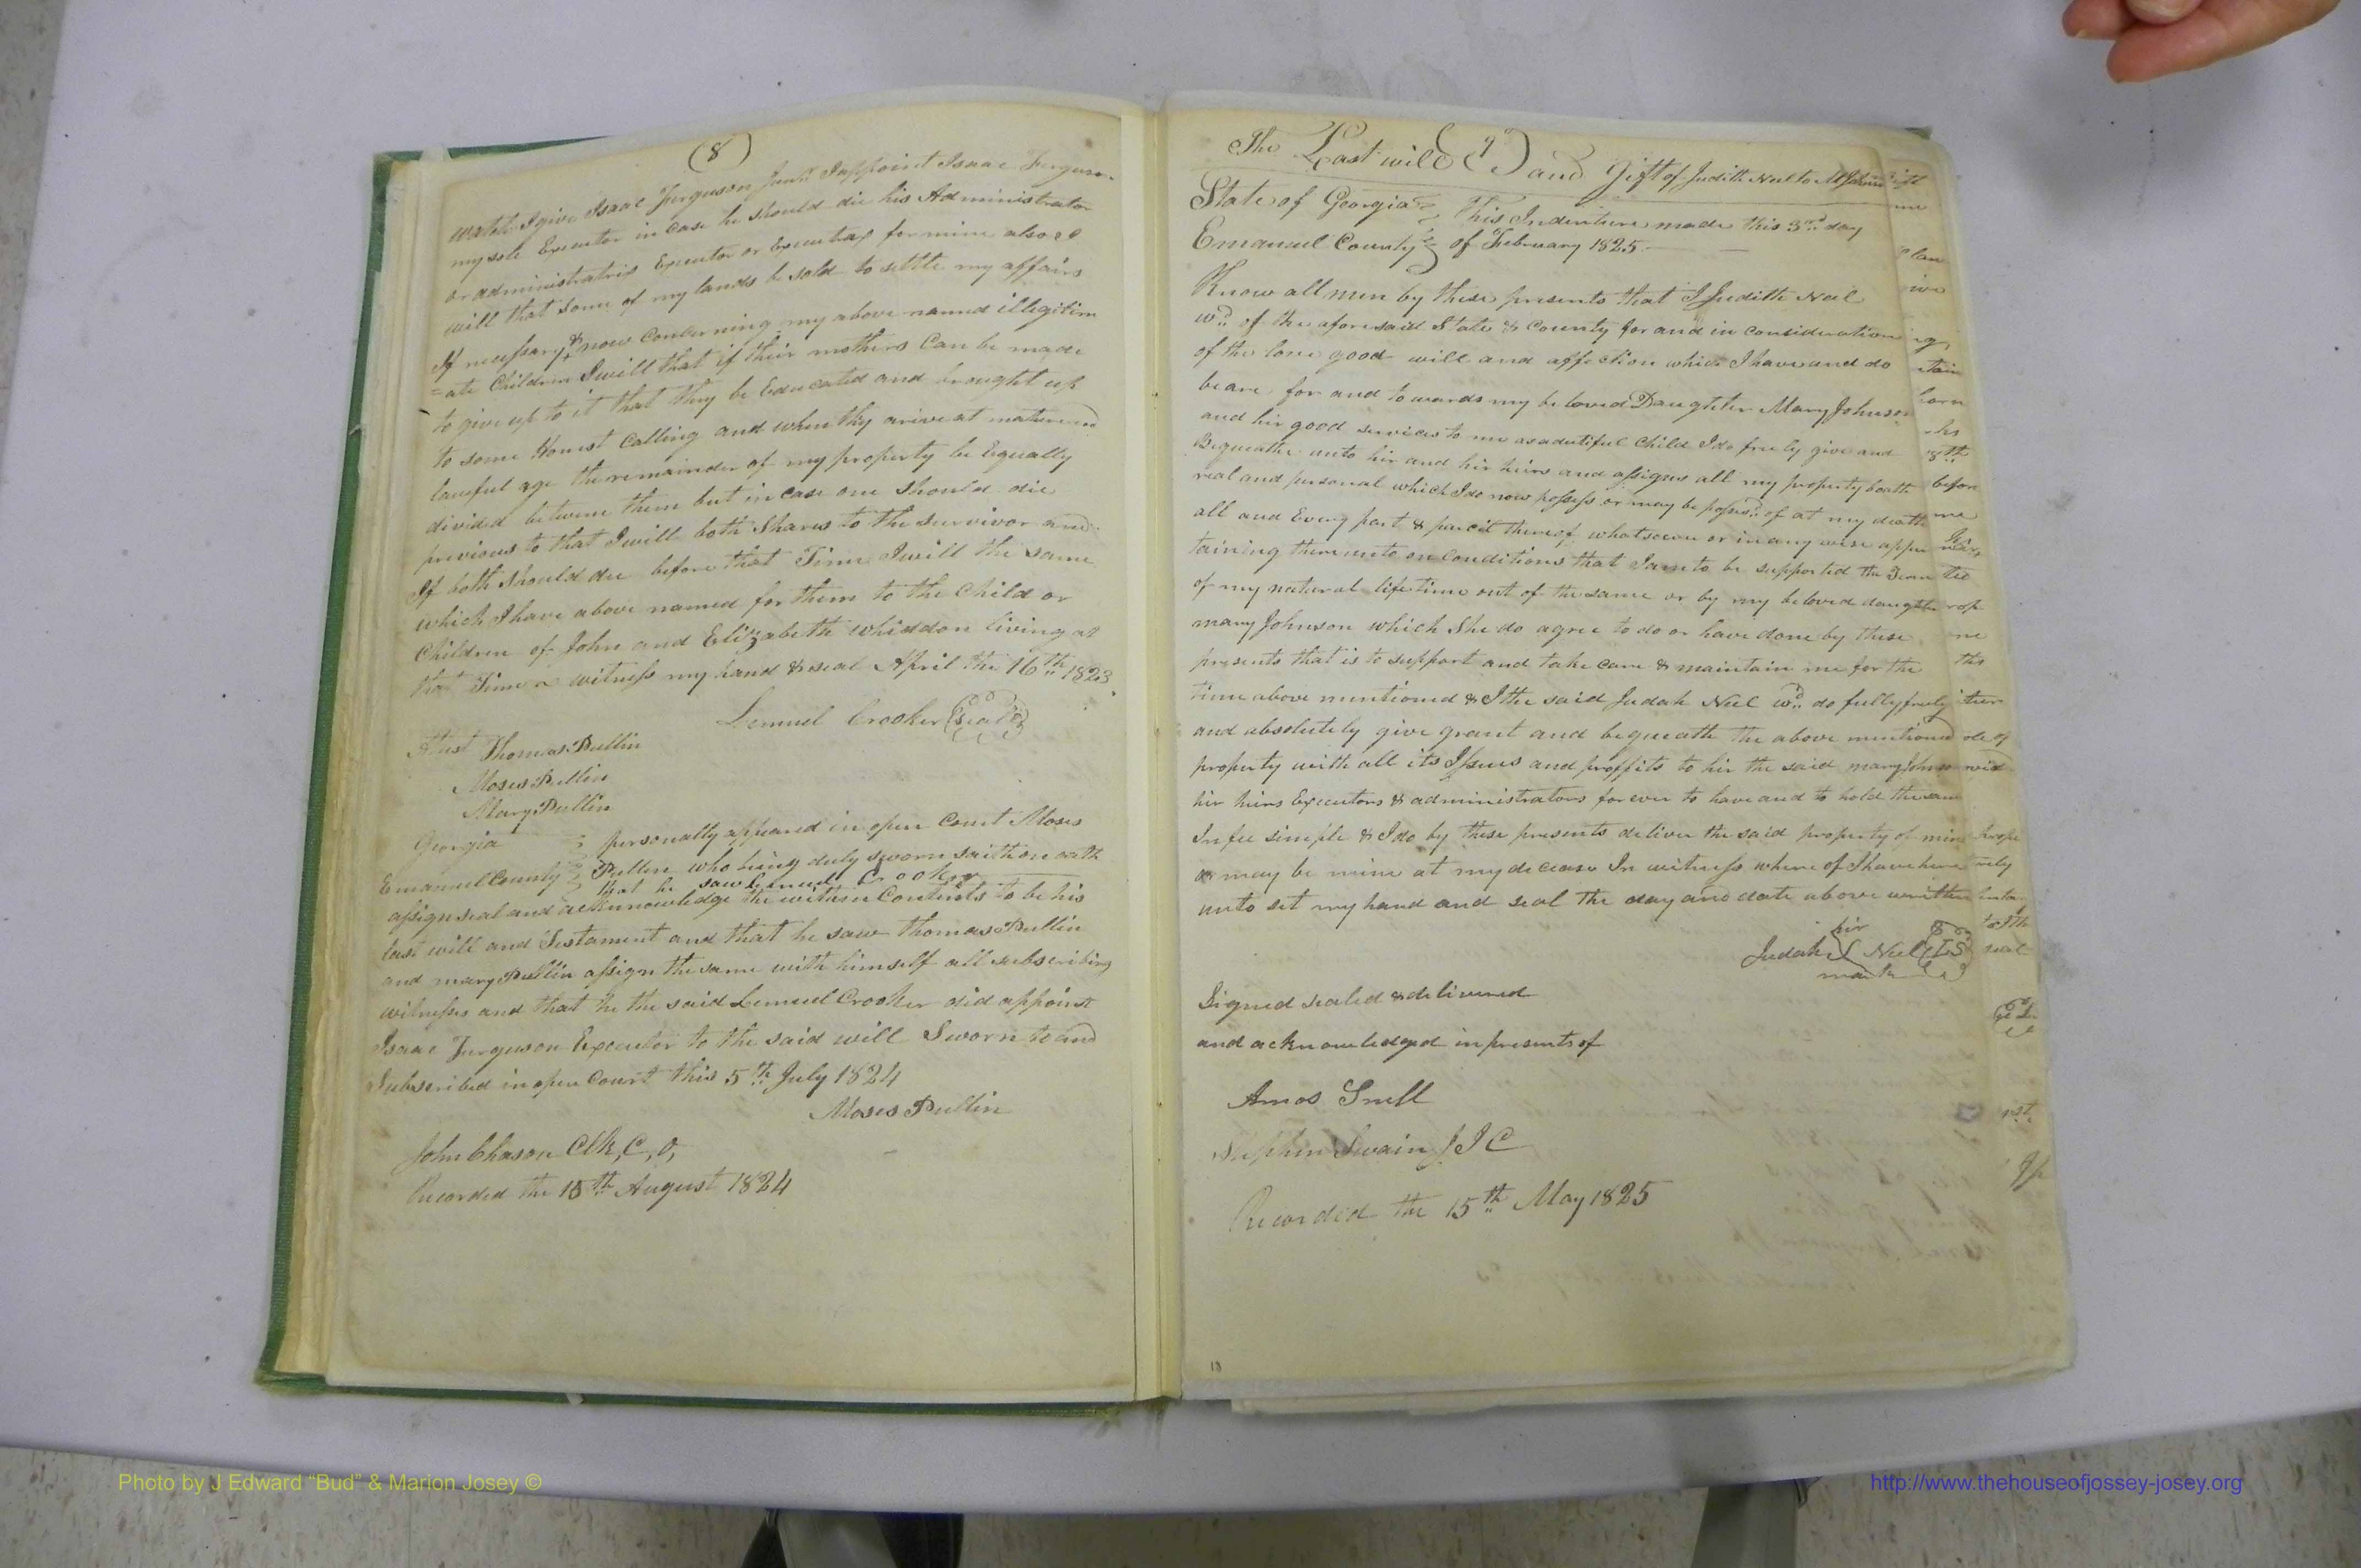 (8)
watch I give Isaac Ferguson Junr. I appoint Isaac Ferguson
my sole Executor in case he should die his Administrator
or administratrix Executor or Executrix for mine also I
will that some of my lands be sold to settle my affairs
If necessary & now concerning my above named illegitim
=ate Children I will that if their mothers Can be made
to give up to it that they be Educated and brought up
to some Honest Calling and when thy arive at mature and
lawful age the remainder of my property be Equally
divided between them but in case one should die
previous to that I will both Shares to the survivor and
If both should die before that Time I will the same
which I have above named for them to the Child or
Children of John and Elizabeth Whiddon living at
that Time witness my hand & seal April the 16th 1823
Lemuel Crooker (Seal)
Attest Thomas Pullin
Moses Pullin
Mary Pullin
Georgia
Emanuel County
personally appeared in open Court Moses
Pullin who being duly sworn saith on oath
that he saw Lemuel Crooker
assign seal and acknowledge the within Contents to be his
last will and Testament and that he saw Thomas Pullin
and mary Pullin assign the same with himself all subscribing
witnesses and that he the said Lemuel Crooker did appoint
Isaac Ferguson Executor to the said will Sworn to and
Subscribed in open Court this 5th July 1824
Moses Pullin
John Chason Clk, C, O,
Recorded the 15th August 1824
The Last will (9) and Gift of Judith Neel to M Johnson
State of Georgia
Emanuel County
This Indenture made this 3rd day
of February 1825
Know all men by these presents that I Judith Neel
wd. of the aforesaid State & County for and in consideration
of the love good will and affection which I have and do
beare for and towards my beloved Daughter Mary Johnson
and hir good services to me as a dutiful Child I do freely give and
Bequeathe unto hir and hir heirs and assigns all my property boath
real and personal which I do now possess or may be possesd. of at my death
all and Every part & parcel thereof whatsoever or in any wise apper
taining thereunto on Conditions that I am to be supported the Term
of my natural life time out of the same or by my beloved daughter
mary Johnson which She do agree to do or have done by these
presents that is to support and take care & maintain me for the
time above mentioned & I the said Judah Neel wd. do fully freely
and absolutely give grant and bequeath the above mentioned
property with all its Issues and proffits to hir the said mary Johnson
hir heirs Executors & administrators forever to have and to hold the same
In fee simple & I do by these presents deliver the said property of mine
or may be mine at my decease In witness where of I have here
unto set my hand and seal the day and date above written
hir
Judah Neel (LS)
mark
Signed sealed & delivered
and acknowledged in presents of
Amos Snell
Stephen Swain J I C
Recorded the 15th May 1825
18
Photo by J Edward “Bud” & Marion Josey ©
http://www.thehouseofjossey-josey.org